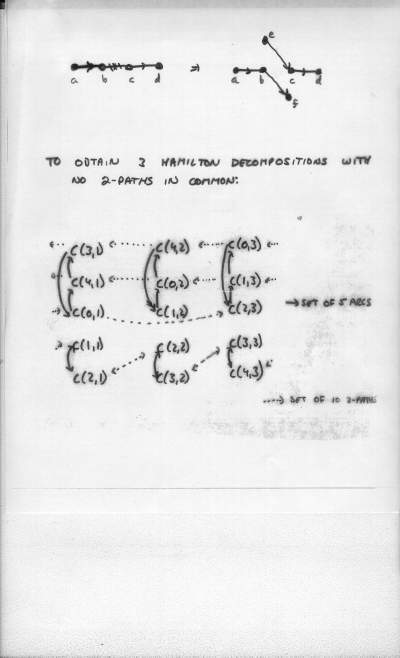 e
a b c d ⇒ a b c d
f
TO OBTAIN 3 HAMILTON DECOMPOSITIONS WITH
NO 2-PATHS IN COMMON:
C(3,1) C(4,2) C(0,3)
C(4,1) C(0,2) C(1,3)
C(0,1) C(1,2) C(2,3) → SET OF 5 ARCS
C(1,1) C(2,2) C(3,3)
C(2,1) C(3,2) C(4,3)
SET OF 10 2-PATHS